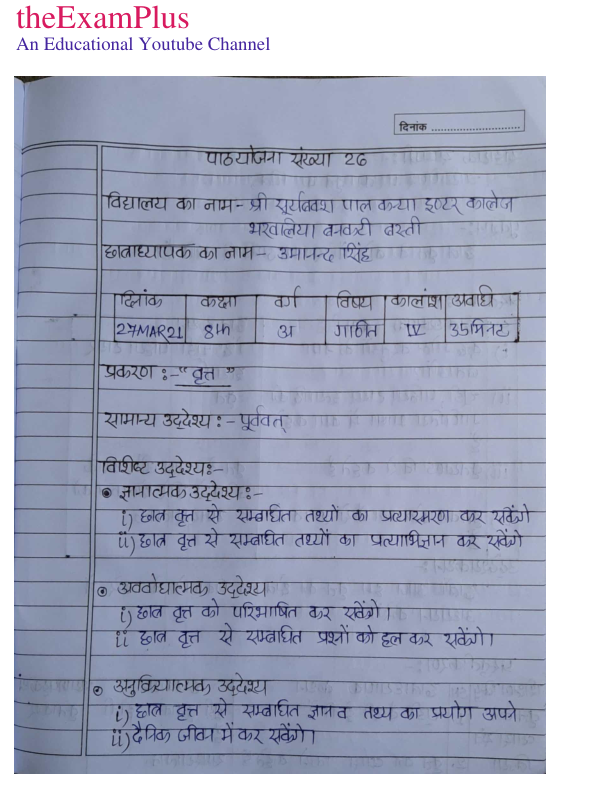 theExamPlus
An Educational Youtube Channel
दिनांक
पाठयोजना संख्या 26
विद्यालय का नाम- श्री सूर्यबक्श पाल कन्या इण्टर कालेज
बनकटी बस्ती
छात्राध्यापक का नाम- उमानन्द सिंह
दिनांक कक्षा वर्ग विषय कालांश अवधि
27MAR21 8th अ गणित IV 35मिनट
प्रकरण :- "वृत्त"
सामान्य उद्देश्य :- पूर्ववत्
विशिष्ट उद्देश्य:-
ज्ञानात्मक उद्देश्य :-
i) छात्र वृत्त से सम्बंधित तथ्यों का प्रत्यास्मरण कर सकेंगे
ii) छात्र वृत्त से सम्बंधित तथ्यों का प्रत्याभिज्ञान कर सकेंगे
अवबोधात्मक उद्देश्य
i) छात्र वृत्त को परिभाषित कर सकेंगे।
ii छात्र वृत्त से सम्बंधित प्रश्नों को हल कर सकेंगे।
अनुक्रियात्मक उद्देश्य
i) छात्र वृत्त से सम्बंधित ज्ञान व तथ्य का प्रयोग अपने
ii) दैनिक जीवन में कर सकेंगे।